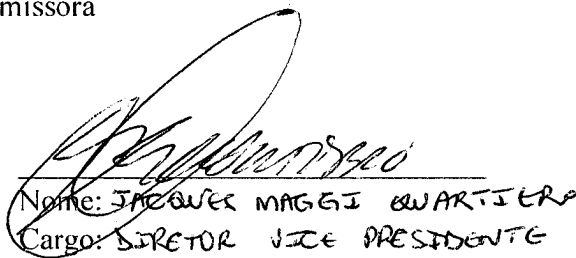 missora
Nome: JACQUES MAGGI QUARTIERO
Cargo: DIRETOR VICE PRESIDENTE